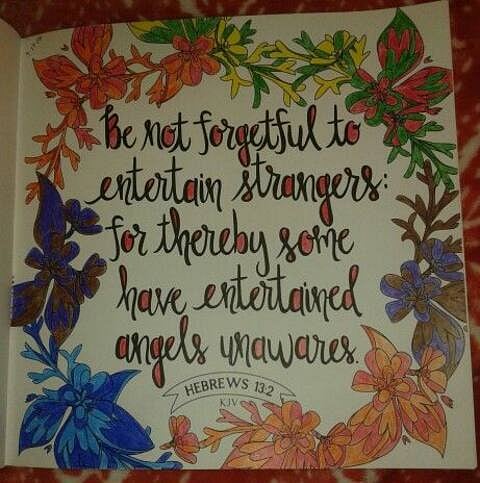 Be not forgetful to
entertain strangers:
for thereby some
have entertained
angels unawares.
HEBREWS 13:2
KJV